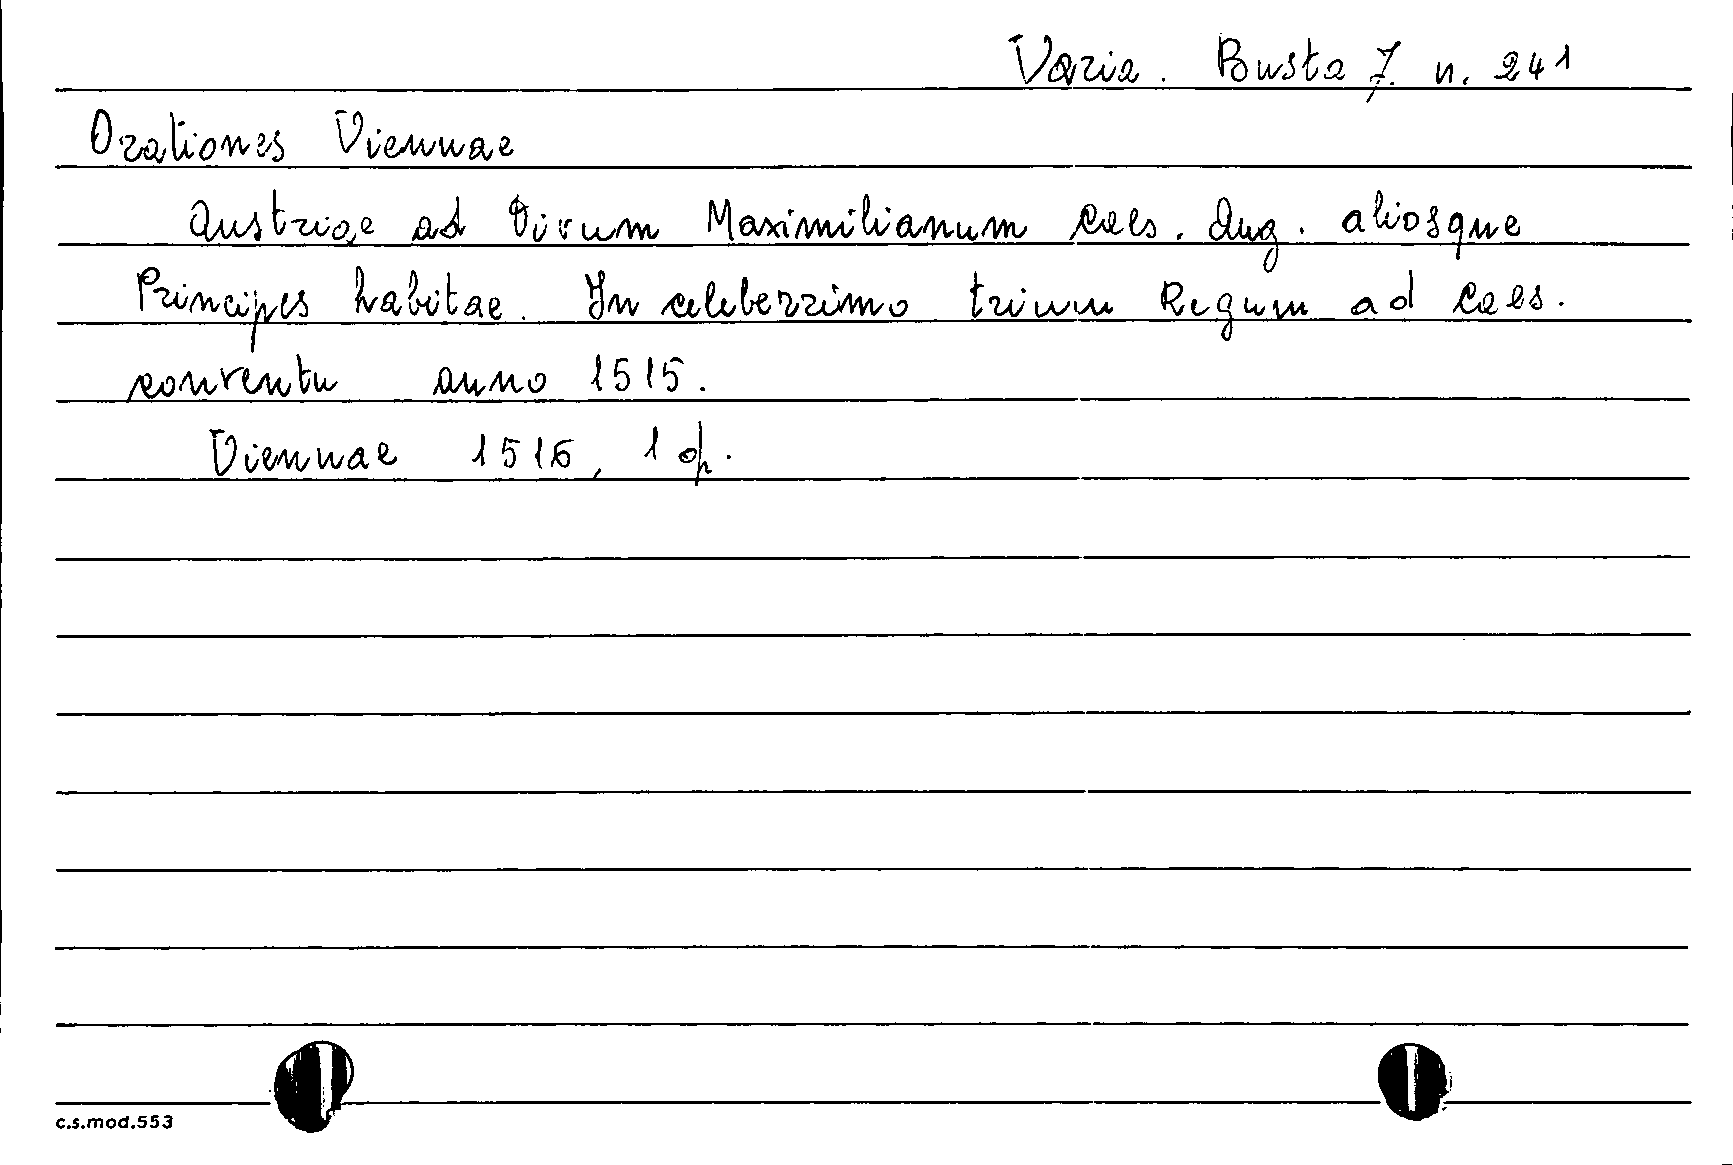 Varia. Busta 7. n. 241
Orationes Viennae
Austriae ad Divum Maximilianum Caes. Aug. aliosque
Principes habitae. In celeberrimo trium Regum ad Caes.
conventu anno 1515.
Viennae 1516, 1 op.
c.s.mod.553